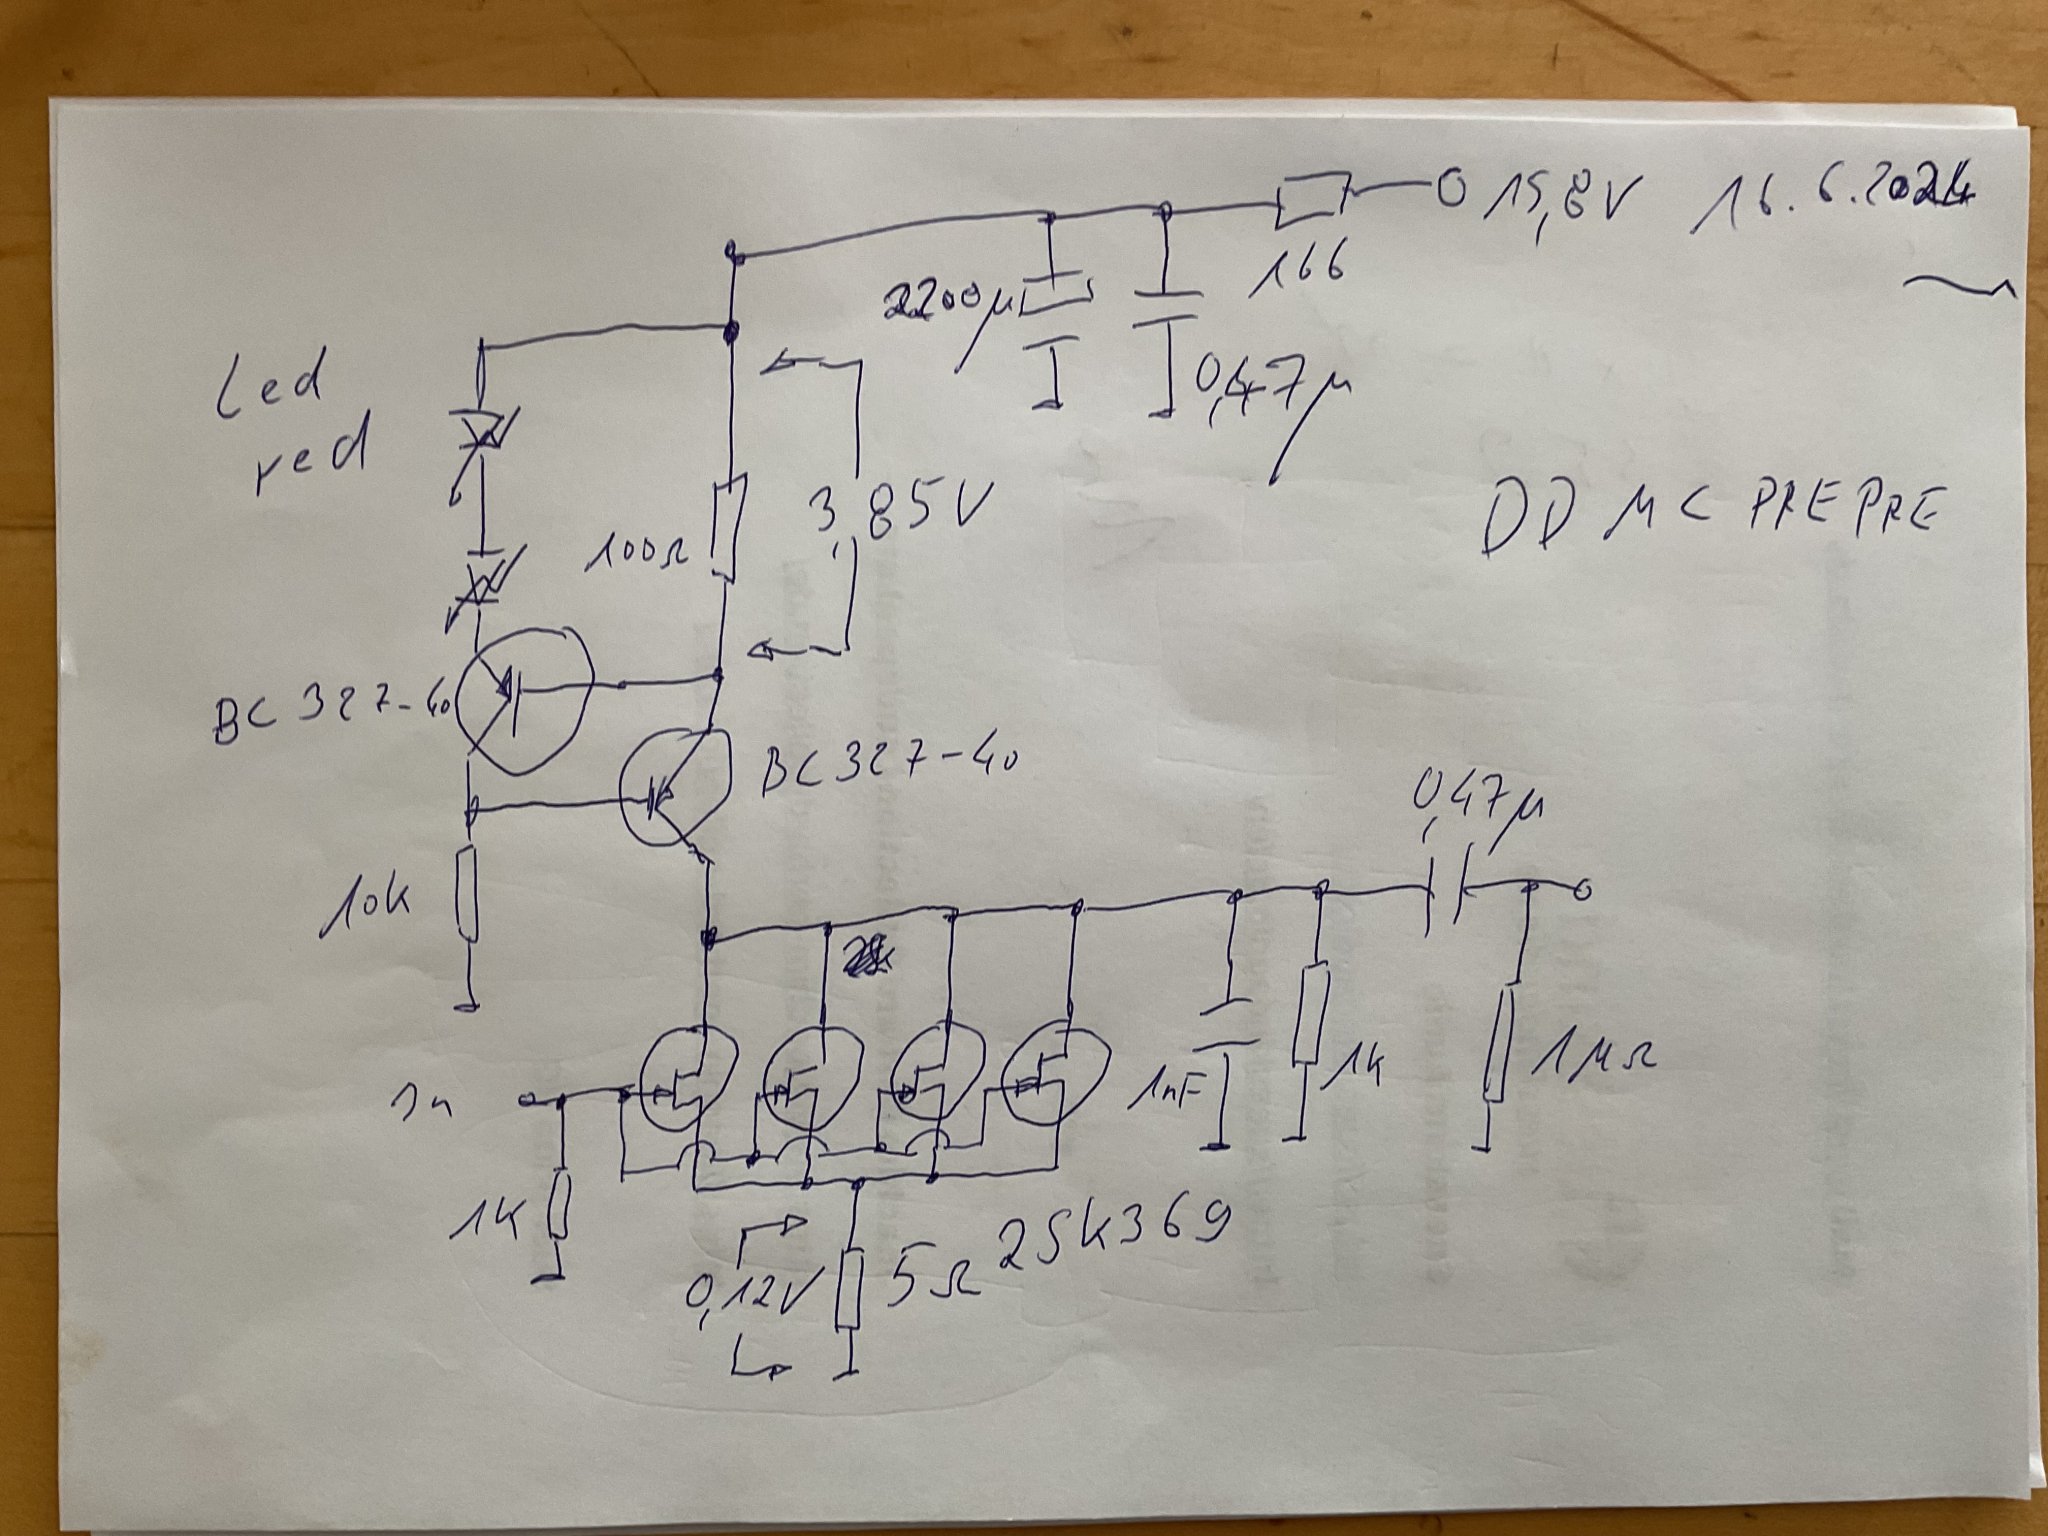 15,8V 16.6.2024
166
2200µ
0,47µ
Led
red
3,85V
DD MC PREPRE
100Ω
BC 327-40
BC 327-40
0,47µ
10k
1nF
1k
1MΩ
In
1k
2SK369
5Ω
0,12V